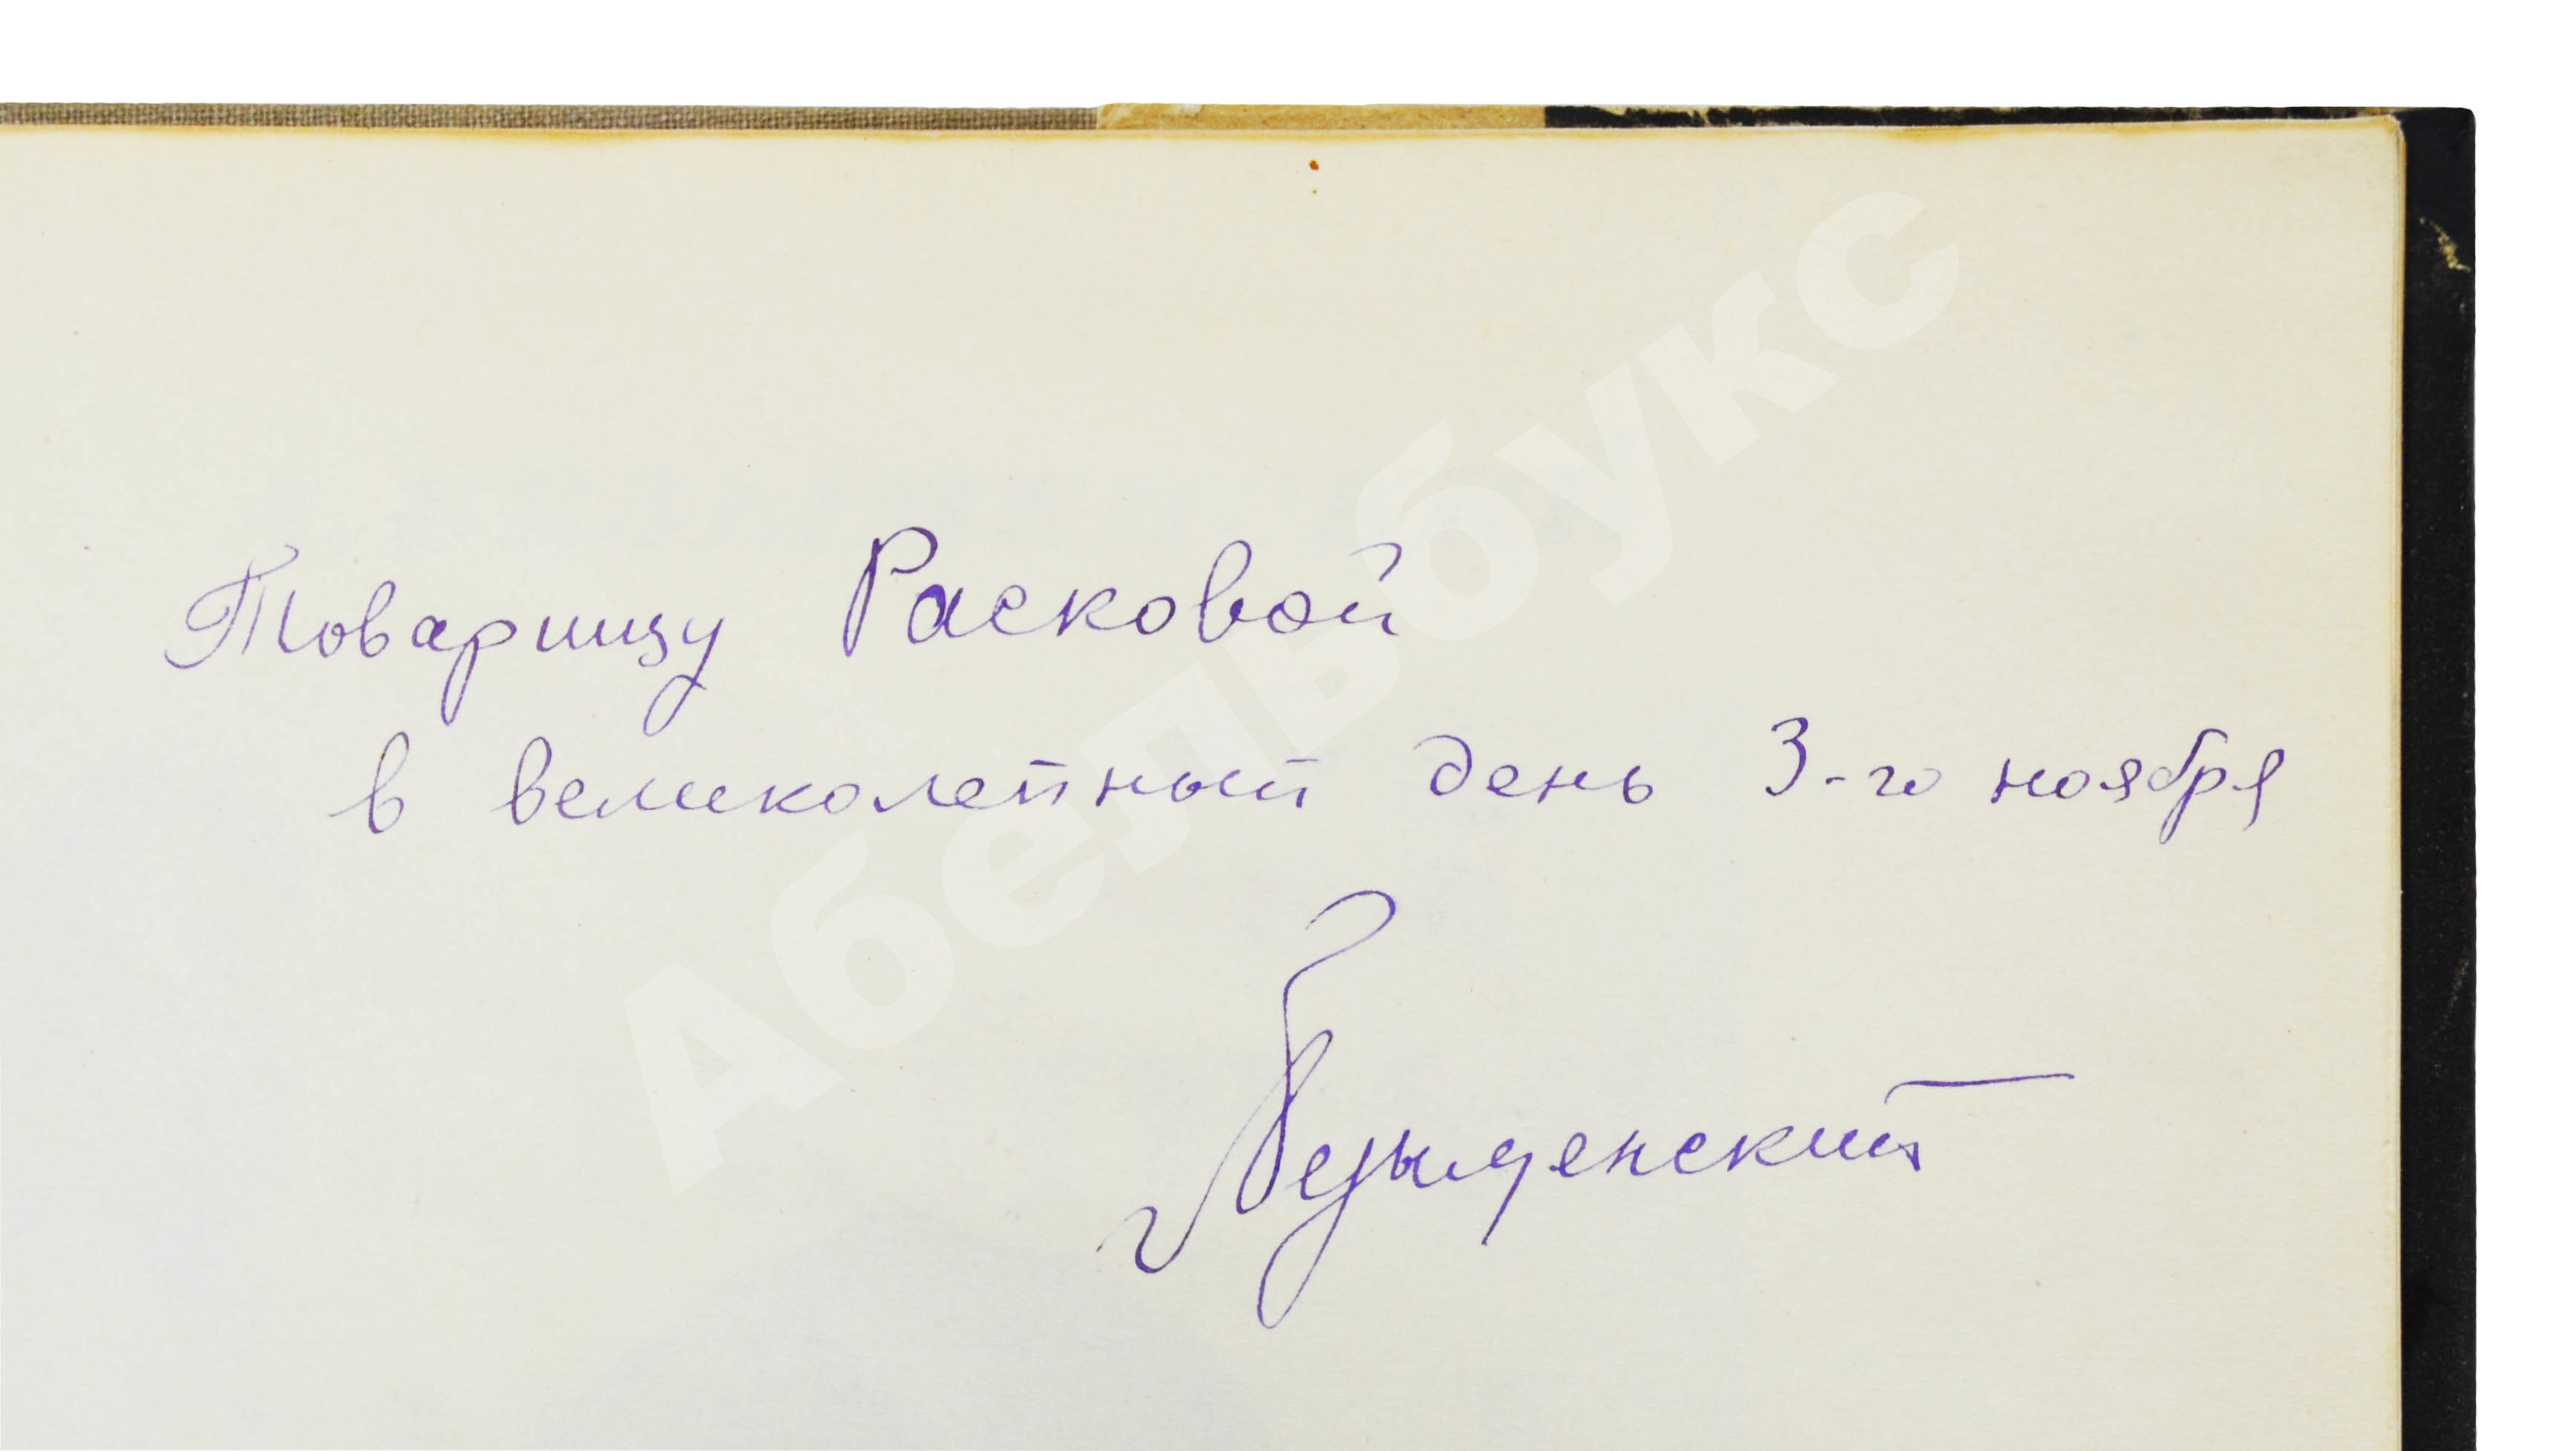 Товарищу Расковой
в великолепный день 3-го ноября
Безыменский
Абельбукс